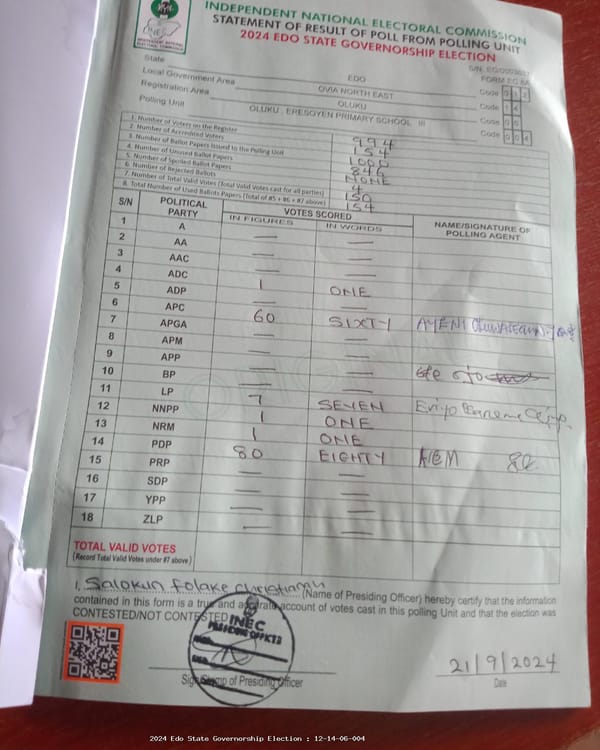 INDEPENDENT NATIONAL ELECTORAL COMMISSION
STATEMENT OF RESULT OF POLL FROM POLLING UNIT
2024 EDO STATE GOVERNORSHIP ELECTION
FORM EC 8A
State EDO Code 012
Local Government Area OVIA NORTH EAST Code 14
Registration Area OLUKU Code 06
Polling Unit OLUKU , ERESOYEN PRIMARY SCHOOL III Code 004
1. Number of Voters on the Register 994
2. Number of Accredited Voters 154
3. Number of Ballot Papers Issued to the Polling Unit 1000
4. Number of Unused Ballot Papers 846
5. Number of Spoiled Ballot Papers NONE
6. Number of Rejected Ballots 4
7. Number of Total Valid Votes (Total Valid Votes cast for all parties) 150
8. Total Number of Used Ballots Papers (Total of #5 + #6 + #7 above) 154
S/N POLITICAL PARTY VOTES SCORED NAME/SIGNATURE OF POLLING AGENT
IN FIGURES IN WORDS
1 A — —
2 AA — —
3 AAC — —
4 ADC 1 ONE
5 ADP — —
6 APC 60 SIXTY AYENI
7 APGA — —
8 APM — —
9 APP — —
10 BP — —
11 LP 7 SEVEN
12 NNPP 1 ONE
13 NRM 1 ONE
14 PDP 80 EIGHTY
15 PRP — —
16 SDP — —
17 YPP — —
18 ZLP — —
TOTAL VALID VOTES
(Record Total Valid Votes under #7 above)
I, Salokun Folake Christianu (Name of Presiding Officer) hereby certify that the information
contained in this form is a true and accurate account of votes cast in this polling Unit and that the election was
CONTESTED/NOT CONTESTED
INEC
PRESIDING OFFICER
21/9/2024
Sign/Stamp of Presiding Officer Date
2024 Edo State Governorship Election : 12-14-06-004